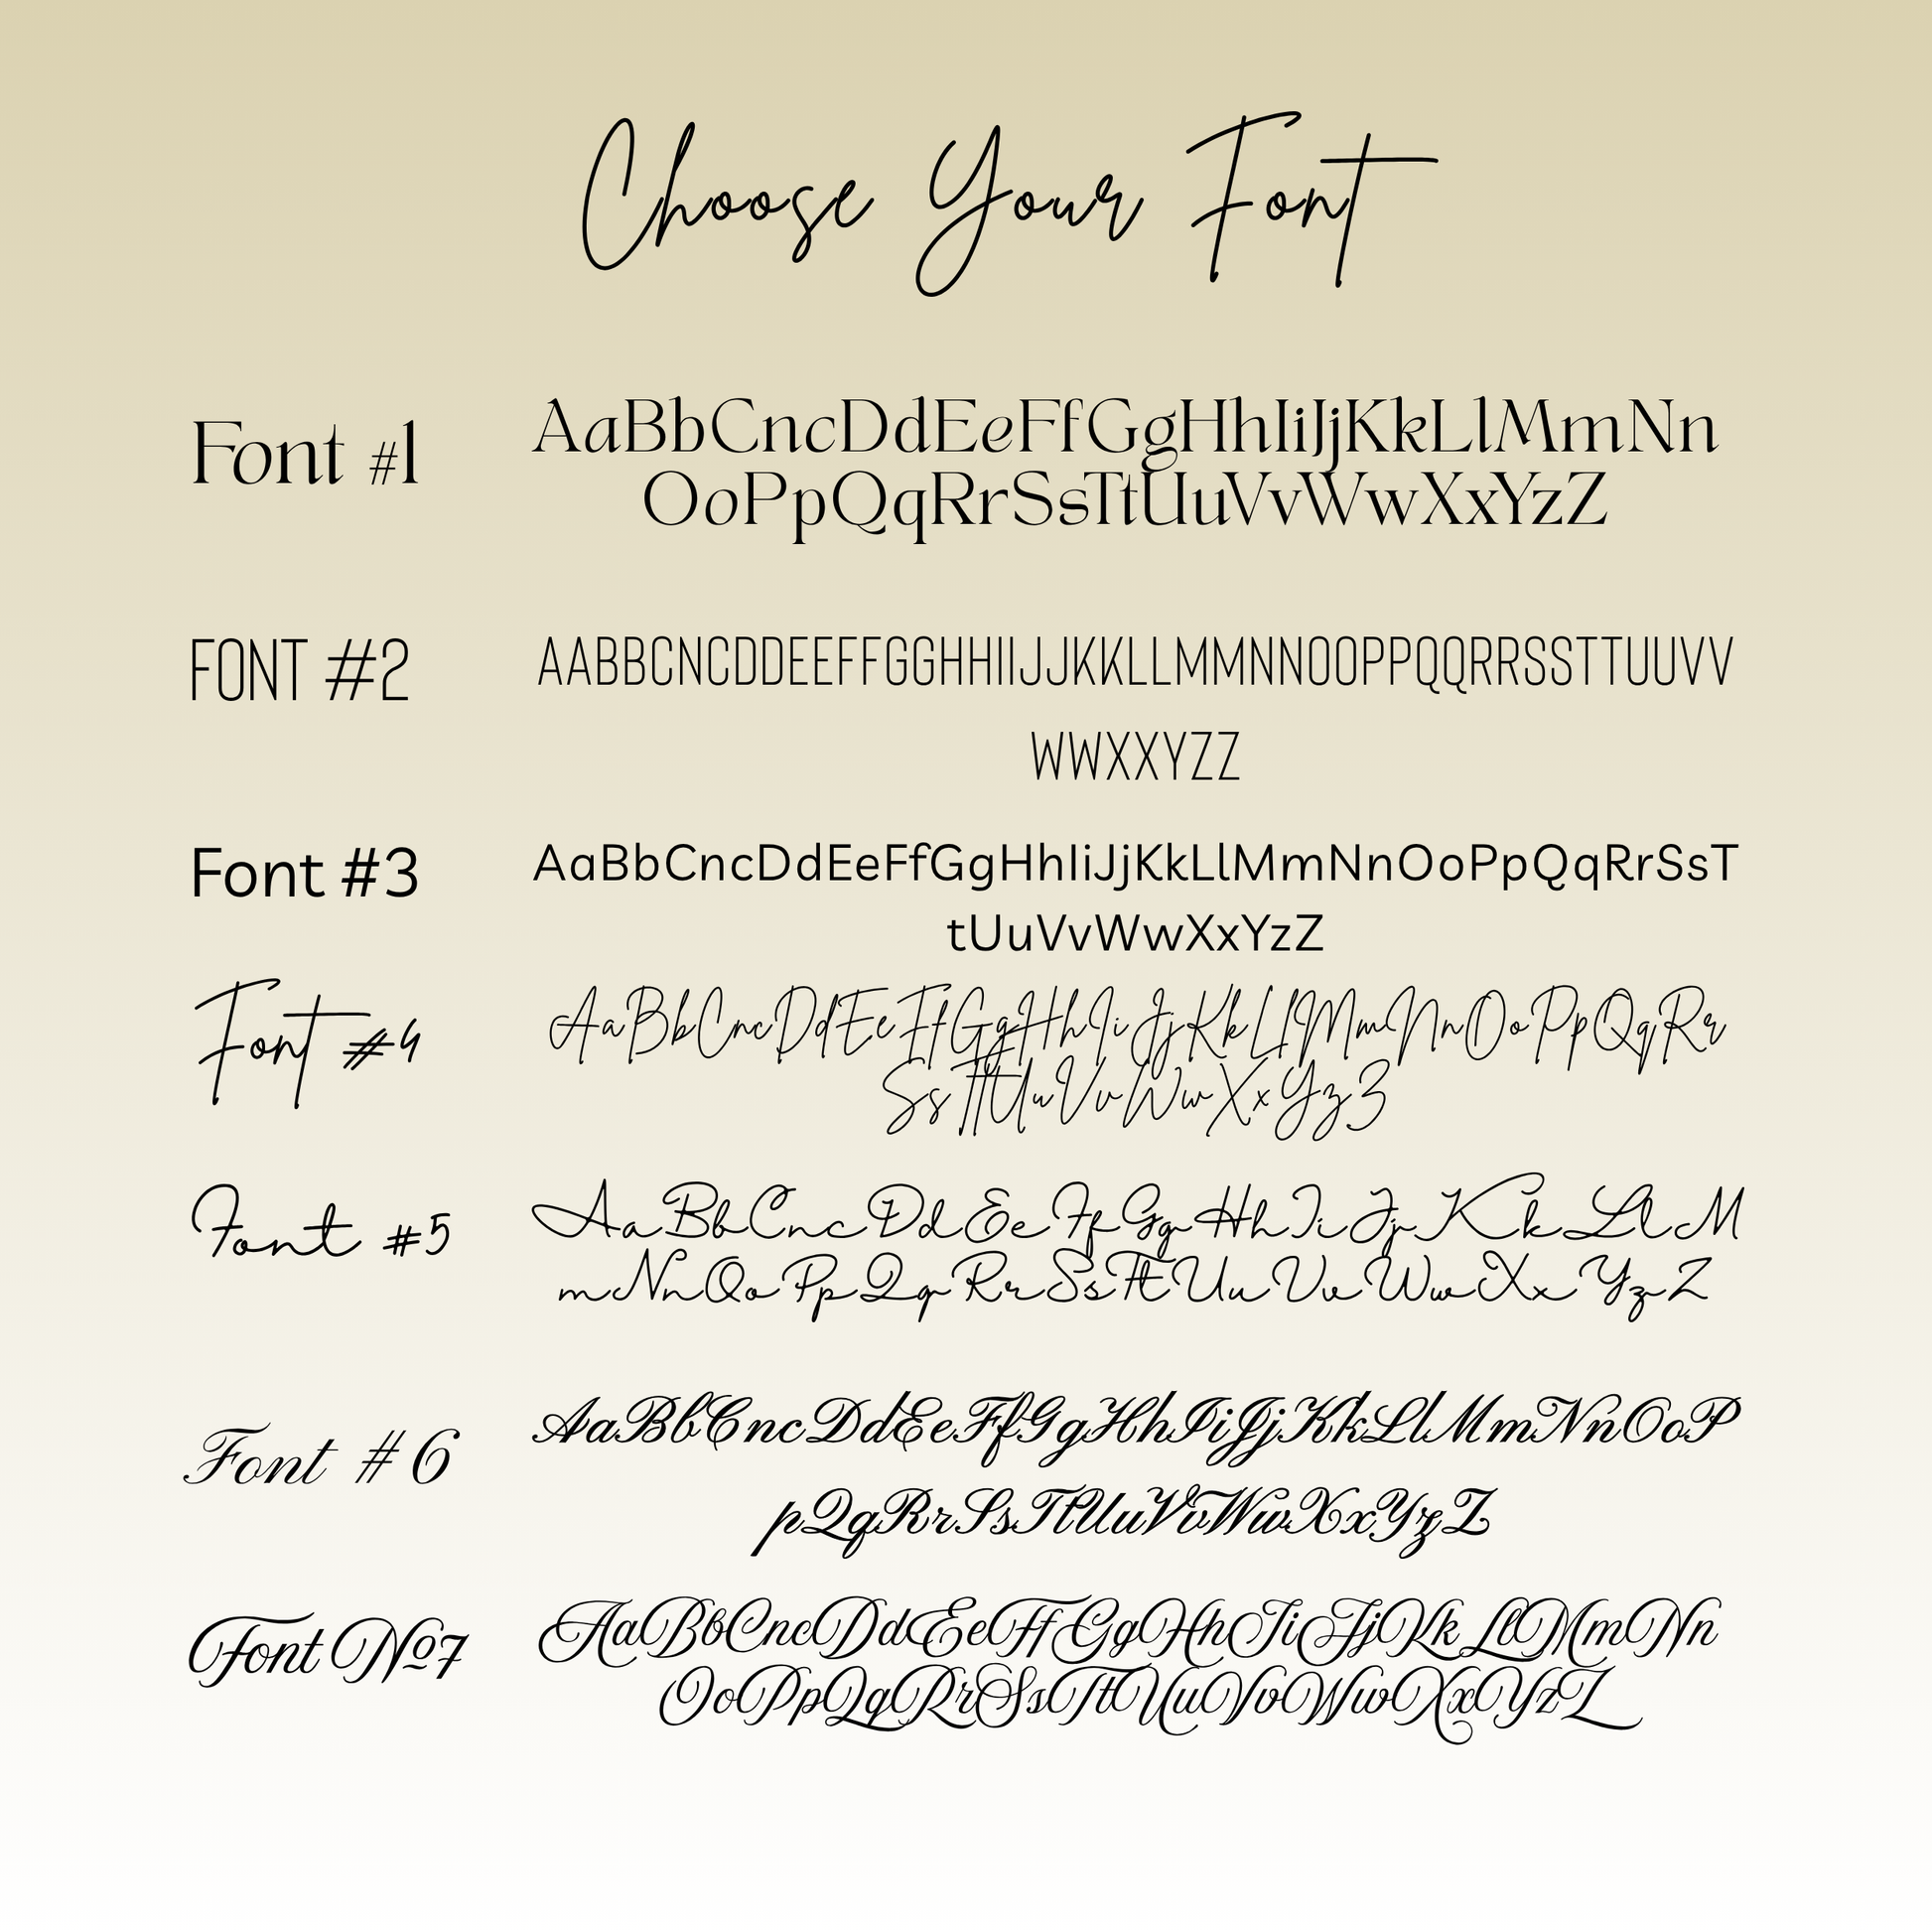 Choose Your Font
Font #1
AaBbCncDdEeFfGgHhIiJjKkLlMmNn
OoPpQqRrSsTtUuVvWwXxYzZ
FONT #2
AABBCNCDDEEFFGGHHIIJJKKLLMMNNOOPPQQRRSSTTUUVV
WWXXYZZ
Font #3
AaBbCncDdEeFfGgHhIiJjKkLlMmNnOoPpQqRrSsT
tUuVvWwXxYzZ
Font #4
AaBbCncDdEeFfGgHhIiJjKkLlMmNnOoPpQqRr
SsTtUuVvWwXxYzZ
Font #5
AaBbCncDdEeFfGgHhIiJjKkLlM
mNnOoPpQqRrSsTtUuVvWwXxYzZ
Font #6
AaBbCncDdEeFfGgHhIiJjKkLlMmNnOoP
pQqRrSsTtUuVvWwXxYzZ
Font №7
AaBbCncDdEeFfGgHhIiJjKkLlMmNn
OoPpQqRrSsTtUuVvWwXxYzZ